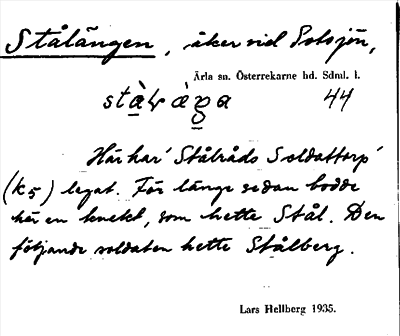 Stålängen, åker vid Solsjön,
Ärla sn. Österrekarne hd. Sdml. l.
44
Här har 'Stålråds Soldattorp'
(K5) legat. För länge sedan bodde
här en knekt, som hette Stål. Den
följande soldaten hette Stålberg.
Lars Hellberg 1935.